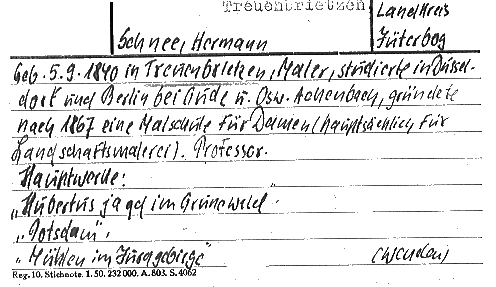 Treuenbrietzen
Landkreis
Schnee, Hermann
Jüterbog
Geb. 5.9.1840 in Treuenbrietzen, Maler, studierte in Düssel-
dorf und Berlin bei Gude u. Osw. Achenbach, gründete
nach 1867 eine Malschule für Damen (hauptsächlich für
Landschaftsmalerei). Professor.
Hauptwerke:
„Hubertusjagd im Grunewald"
„Potsdam",
„Mühlen im Juragebirge"
Reg. 10. Stichnote. I. 50. 232 000. A. 803. S. 4062